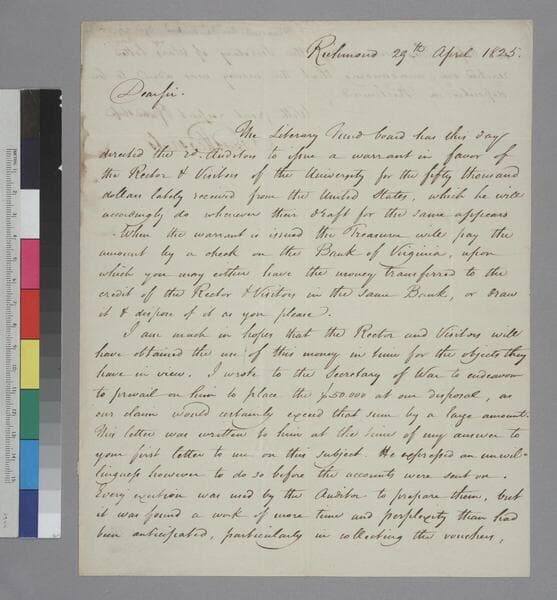 Richmond 29th April 1825.
Dear Sir.
The Literary Fund board has this day
directed the 2d Auditor to issue a warrant in favor of
the Rector & Visitors of the University for the fifty thousand
dollars lately received from the United States, which he will
accordingly do whenever their draft for the same appears
- When the warrant is issued the Treasurer will pay the
amount by a check on the Bank of Virginia, upon
which you may either have the money transferred to the
credit of the Rector & Visitors in the same Bank, or draw
it & dispose of it as you please.
I am much in hopes that the Rector and Visitors will
have obtained the use of this money in time for the objects they
have in view. I wrote to the Secretary of War to endeavour
to prevail on him to place the $50.000 at our disposal, as
our claim would certainly exceed that sum by a large amount.
This letter was written to him at the time of my answer to
your first letter to me on this subject. He expressed an unwil-
lingness however to do so before the accounts were sent on.
Every exertion was used by the Auditor to prepare them, but
it was found a work of more time and perplexity than had
been anticipated, particularly in collecting the vouchers,